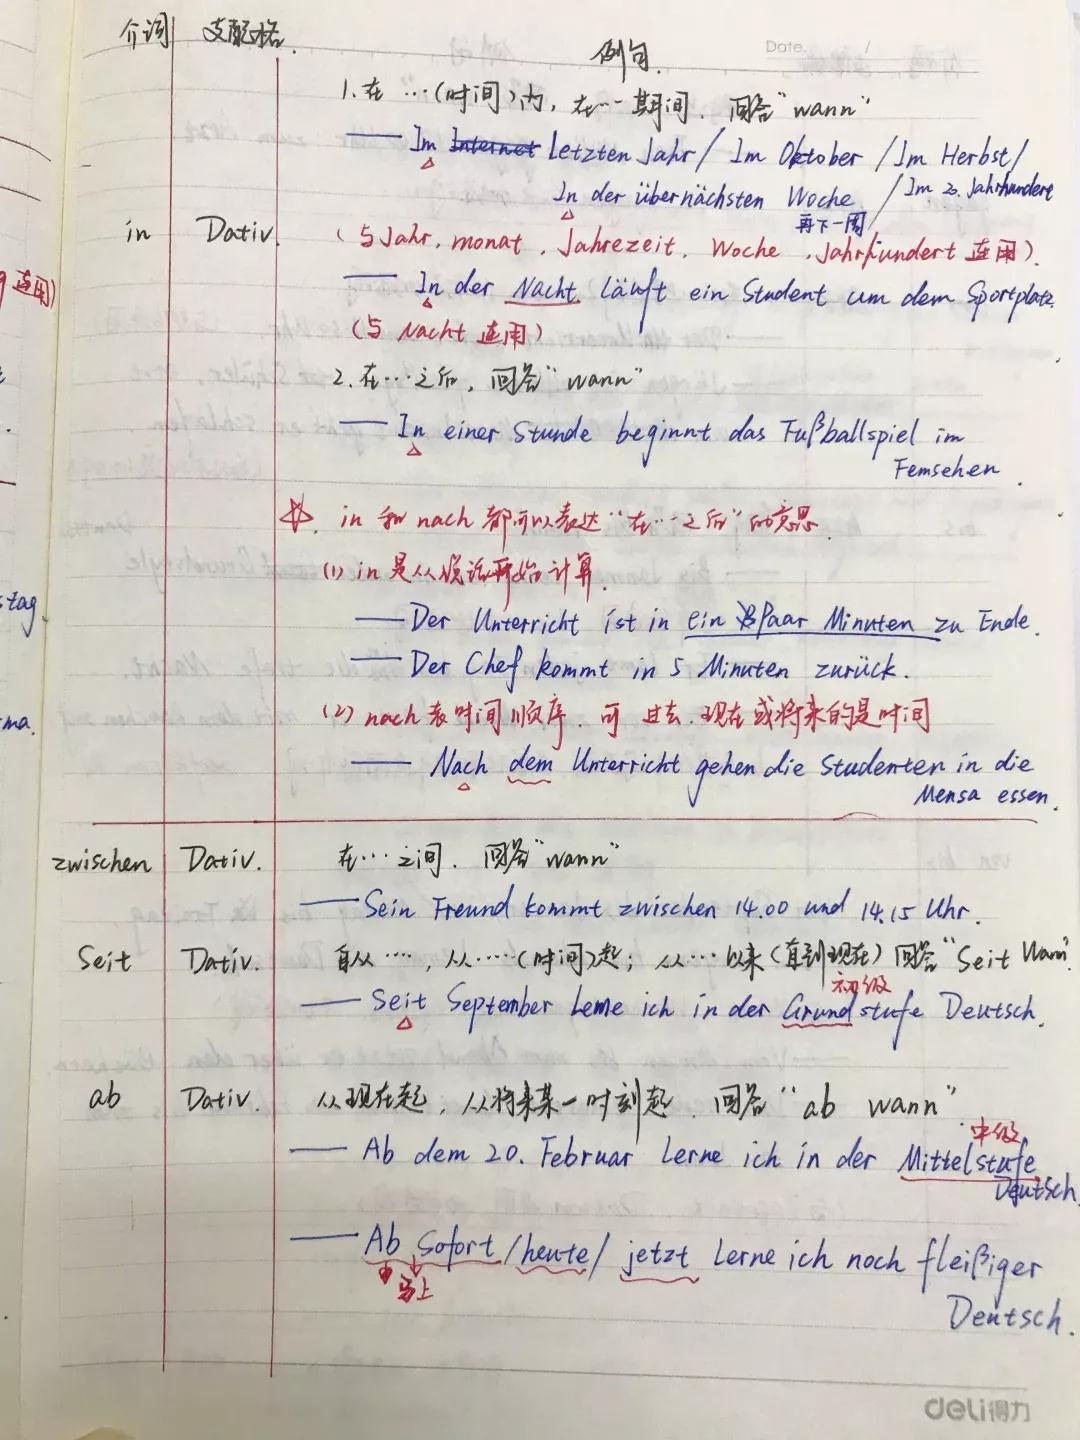 介词 支配格. 例句.
Date. /
1.在…(时间)内,在…期间. 回答"wann"
—— Im Internet Letzten Jahr / Im Oktober / Im Herbst /
In der übernächsten Woche / Im 20. Jahrhundert
再下一周
in Dativ. (与Jahr, monat, Jahrezeit, Woche, Jahrhundert 连用).
—— In der Nacht läuft ein Student um dem Sportplatz.
(与 Nacht 连用)
2.在…之后, 回答"wann"
—— In einer Stunde beginnt das Fußballspiel im
Femsehen.
☆. in 和 nach 都可以表达"在…之后"的意思.
(1) in 是从说话开始计算.
—— Der Unterricht ist in ein Paar Minuten zu Ende.
—— Der Chef kommt in 5 Minuten zurück.
(2) nach 表时间顺序. 可 过去.现在或将来的是时间
—— Nach dem Unterricht gehen die Studenten in die
Mensa essen.
zwischen Dativ. 在…之间. 回答"wann"
—— Sein Freund kommt zwischen 14.00 und 14.15 Uhr.
Seit Dativ. 自从…., 从……(时间)起; 从…以来(直到现在) 回答"Seit Wann"
初级
—— Seit September Leme ich in der Grundstufe Deutsch.
ab Dativ. 从现在起, 从将来某一时刻起. 回答"ab wann"
中级
—— Ab dem 20. Februar Lerne ich in der Mittelstufe
Deutsch.
—— Ab Sofort / heute / jetzt Lerne ich noch fleißiger
马上
Deutsch.
连用)
stag.
ma.
deli得力